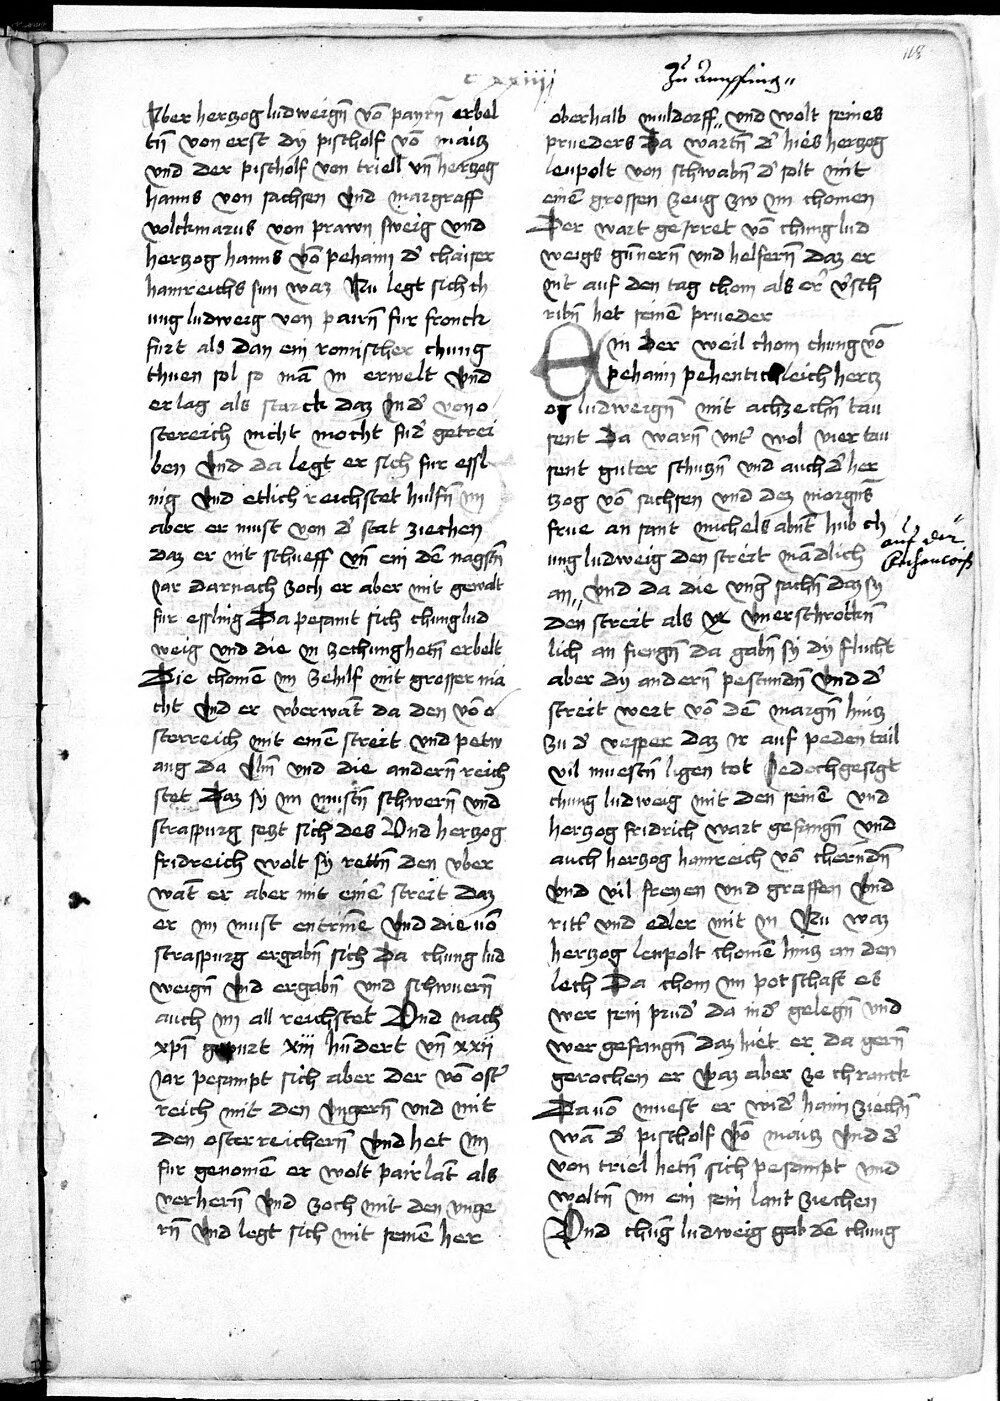 118
c xxiiii
Zu Ampfing
Aber herczog ludweign̄ vō payrn̄ erbel
tn̄ von erst dy pischolf vō maicz
vnd der pischolf von triell vn̄ herczog
hanns von sachsen vnd margraff
volckmarus von prawn sweig vnd
herczog hanns vō pehaim d' chaiser
hainreichs sun waz Nu legt sich ch
ung ludweig von pairn̄ fur franck
furt als dan ein romischer chung
thuen sol so mā in erwelt vnd
er lag als starck daz in d' von o
stereich nicht mocht fud' getrei
ben vnd da legt er sich fur essl
nig vnd etlich reichstet hulfn̄ im
aber er must von d' stat ziechen
daz er nit schueff vn̄ ein dē nagstn̄
Jar darnach zoch er aber mit gewalt
fur essling Da pesamt sich chung lud
weig vnd die in ze chung hetn̄ erbelt
Die chomē im ze hilf mit grosser ma
cht vnd er vberwāt da den vō o
sterreich mit einē streit vnd petw
ang da vlm̄ vnd die andern̄ reich
stet Daz sy im mustn̄ schwern̄ vnd
straspurg seczt sich des Vnd herczog
fridreich wolt sy rettn̄ den vber
wāt er aber mit einē streit daz
er im must entrinē vnd die vō
straspurg ergabn̄ sich Da chung lud
weign̄ vnd ergabn̄ vnd schwuern̄
auch im all reichstet Vnd nach
xp̄i gepurt xiii hūdert vn̄ xxii
Jar pesampt sich aber der vō ost'
reich mit den vngern̄ vnd mit
den osterreichern̄ vnd het im
fur genomē er wolt pairlāt als
verhern̄ vnd zoch mit den vnge
rn̄ vnd legt sich mit seinē her
oberhalb muldorff vnd wolt seines
prueders Da wartn̄ d' hies herczog
leupolt von schwabn̄ d' solt mit
einē grossen zeug zw im chomen
Der wart geirret vō chung lud
weigs gūnern̄ vnd helfern̄ daz er
nit auf den tag chom als er v'sch
ribn̄ het seinē prueder
In der weil chom chung vō
pehaim pehentichleich hertz
og ludweign̄ mit achzechn̄ tau
sent Da warn̄ vnt' wol vier tau
sent guter schuczn̄ vnd auch d' her
tzog vō sachsen vnd dez morgns̄
frue an sant michels abnt̄ hub ch
ung ludweig den streit mādlich
auf der
an vnd da die vng' sachn̄ daz sy
den streit als vnerschrockn̄
lich an fiengn̄ da gabn̄ sy dy flucht
aber dy andern̄ pestundn̄ vnd d'
streit wert vō dē margn̄ hincz
zu d' vesper daz ir auf peden tail
vil muestn̄ ligen tot Jedoch gesigt
chung ludweig mit den seinē vnd
herczog fridrich wart gefangn̄ vnd
auch herczog hainreich vō cherndn̄
vnd vil freyen vnd graffen vnd
ritt' vnd edler mit in Nu waz
herczog leupolt chomē hincz an den
lech Da chom im potschaft es
wer sein prud' da nid' gelegn̄ vnd
wer gefangn̄ daz hiet er da gern̄
gerochen er waz aber ze chranck
Da vō muest er wid' haim ziechn̄
Wā d' pischolf vō maicz vnd d'
von triel hetn̄ sich pesampt vnd
woltn̄ im ein sein lant ziechen
Vnd chūg ludweig gab dē chung